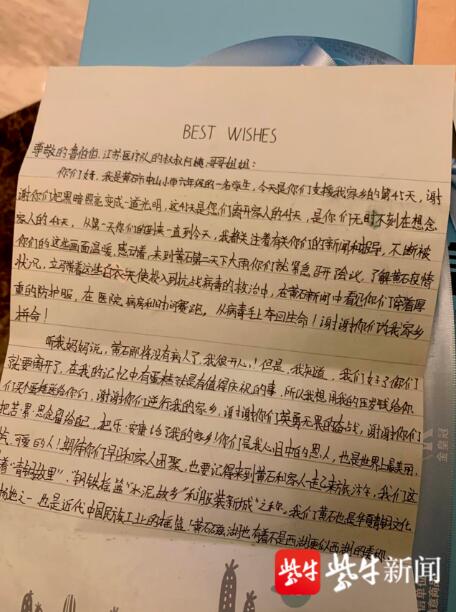 BEST WISHES
尊敬的鲁伯伯、江苏医疗队的叔叔阿姨、哥哥姐姐：
你们好，我是黄石市中山小学六年级的一名学生，今天是你们支援我家乡的第45天，谢
谢你们把黑暗照亮变成一道光明，这45天是你们离开家人的45天，是你们无时不刻在想念
家人的45天，从第一天你们的到来一直到今天，我都关注着有关你们的新闻和报导，不断被
你们的这些画面温暖、感动着，来到黄石第一天下大雨你们就紧急研
了解黄石疫情
状况，立马带着这些白衣天使投入到抗击病毒的救治中，在黄石新闻中看见你们穿着厚
重的防护服，在医院、病房和时间赛跑，从病毒手上夺回生命！谢谢你们为我家乡
拼命！
听我妈妈说，黄石即将没有病人了，我很开心！但是，我知道，我们好了你们
就要离开了，在我的记忆中有蛋糕就是有值得庆祝的事，所以我想用我的压岁钱给你
们买个蛋糕送给你们，谢谢你们逆行我的家乡，谢谢你们英勇无畏的奋战，谢谢你们
把苦累、思念留给自己，把乐、安康给了我的家乡，你们是我心目中的恩人，也是世界上最美丽、
善良的人！期待你们早日和家人团聚，也要记得来到黄石和家人一起来旅游，我们这
有"青铜故里"、"钢铁摇篮"、"水泥故乡"和"服装新城"之称，我们黄石也是华夏青铜文化
发祥地之一，也是近代中国民族工业的摇篮！黄石磁湖也有着不是西湖更似西湖的美称
紫牛新闻
金皇冠